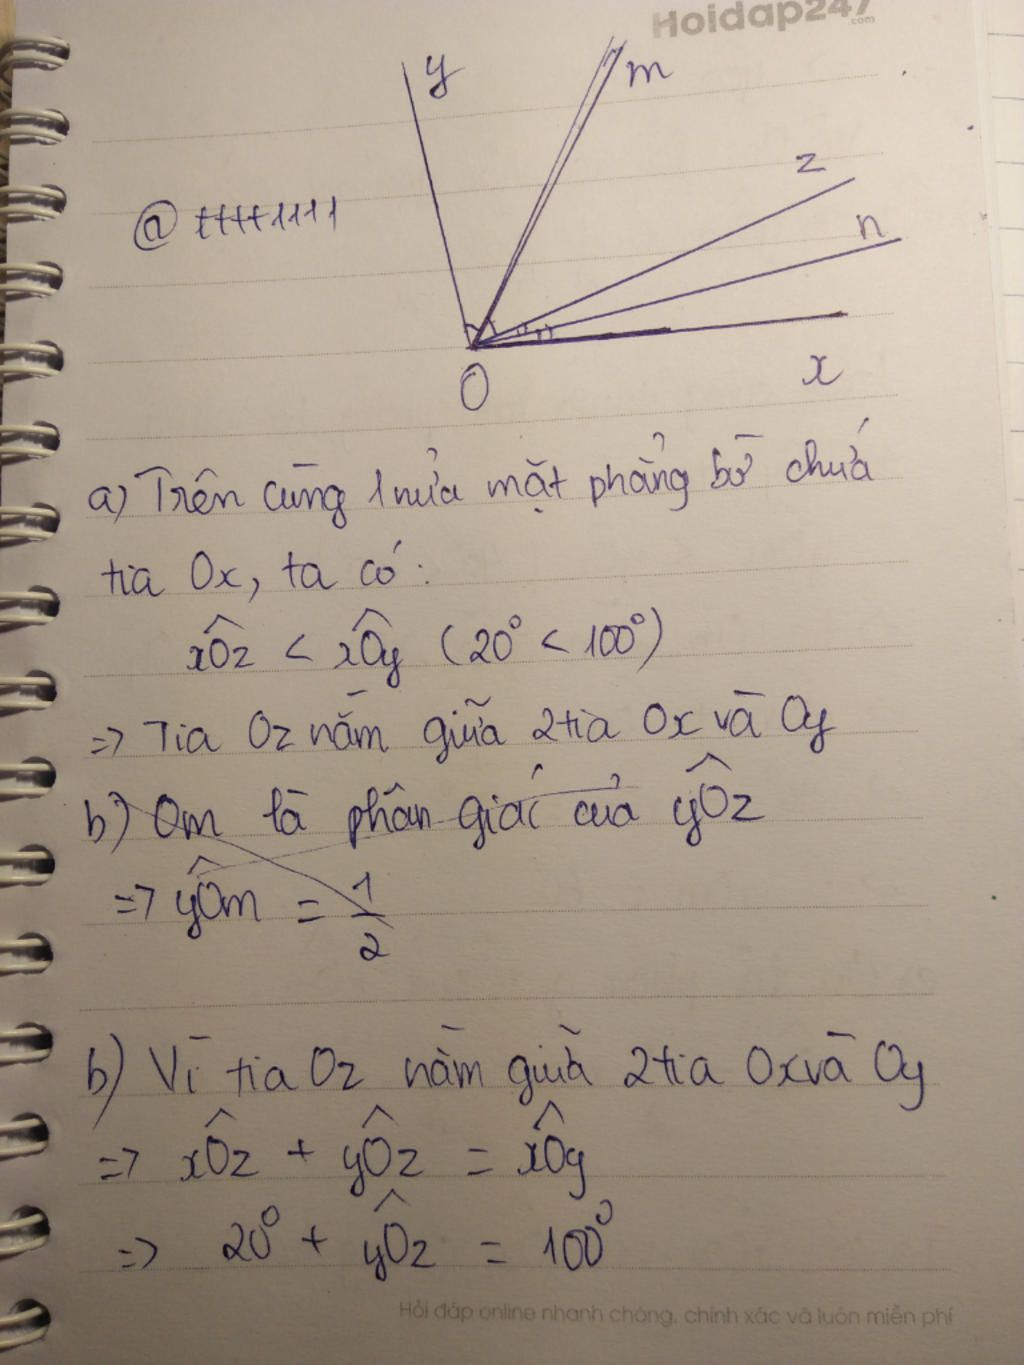 Hoidap247
.com
y
m
z
n
@tttt1111
O
x
a) Trên cùng 1 nửa mặt phẳng bờ chứa
tia Ox, ta có:
xÔz < xÔy (20° < 100°)
=> Tia Oz nằm giữa 2 tia Ox và Oy
b) Om là phân giác của yÔz
=> yÔm = 1/2
b) Vì tia Oz nằm giữa 2 tia Ox và Oy
=> xÔz + yÔz = xÔy
=> 20° + yÔz = 100°
Hỏi đáp online nhanh chóng, chính xác và luôn miễn phí